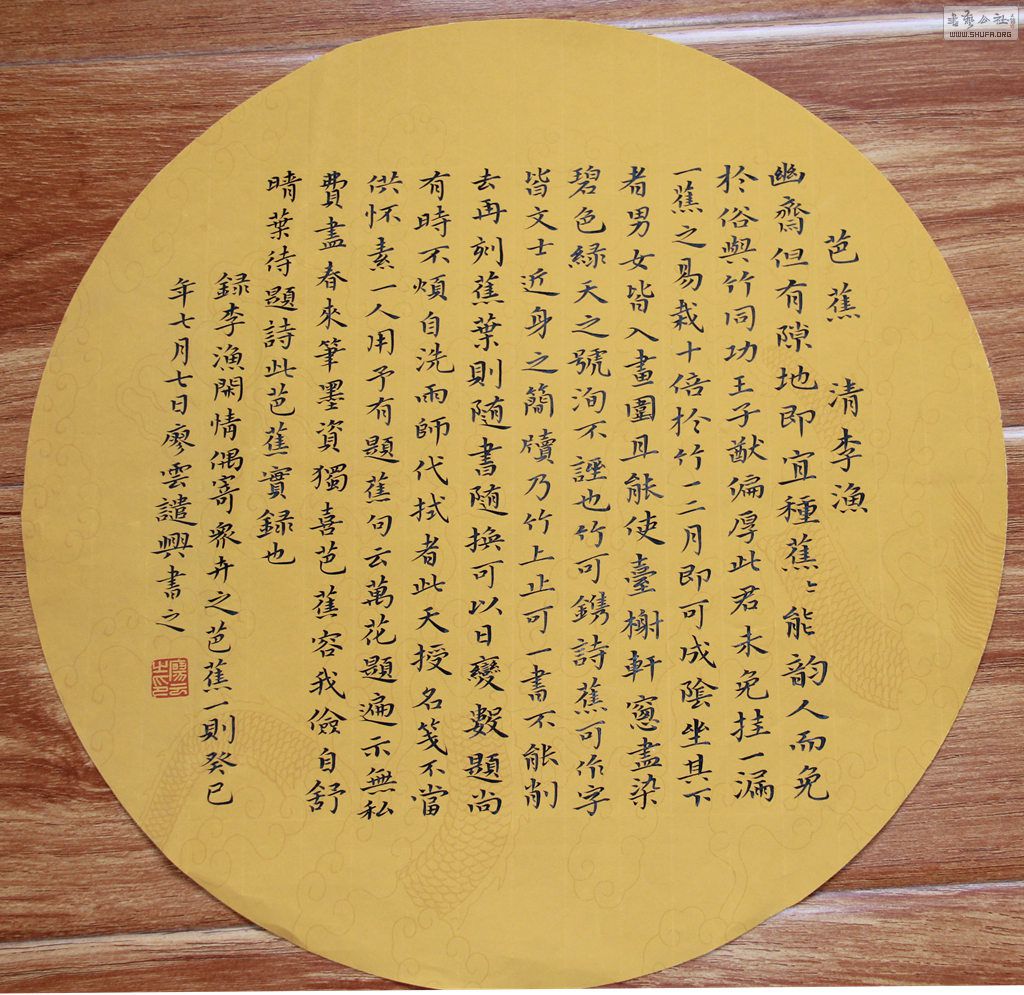 芭蕉 清李漁
幽齋但有隙地即宜種蕉〻能韵人而免
於俗與竹同功王子猷偏厚此君未免挂一漏
一蕉之易栽十倍於竹一二月即可成陰坐其下
者男女皆入畫圖且能使臺榭軒窗盡染
碧色綠天之號洵不誣也竹可鐫詩蕉可作字
皆文士近身之簡牘乃竹上止可一書不能削
去再刻蕉葉則随書随換可以日變數題尚
有時不煩自洗雨師代拭者此天授名箋不當
供怀素一人用予有題蕉句云萬花題遍示無私
費盡春來筆墨資獨喜芭蕉容我儉自舒
晴葉待題詩此芭蕉實録也
録李漁閑情偶寄眾卉之芭蕉一則癸巳
年七月七日廖雲譴興書之
書藝公社
WWW.SHUFA.ORG